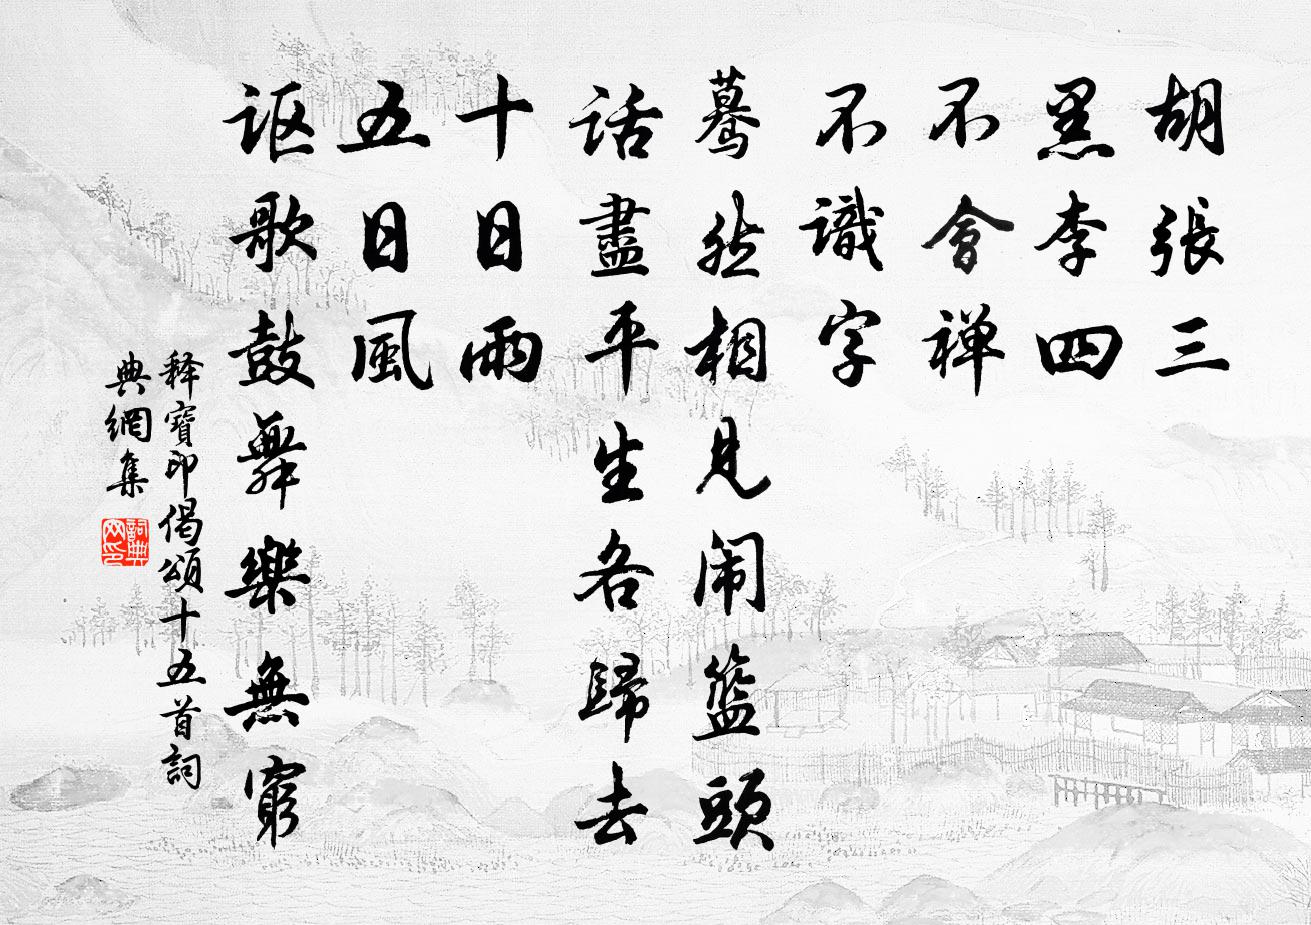 胡張三
黑李四
不會禅
不識字
蓦然相見闹籃頭
话盡平生各歸去
十日雨
五日風
讴歌鼓舞樂無窮
释寶印偈頌十五首詞
典網集
詞典
网印